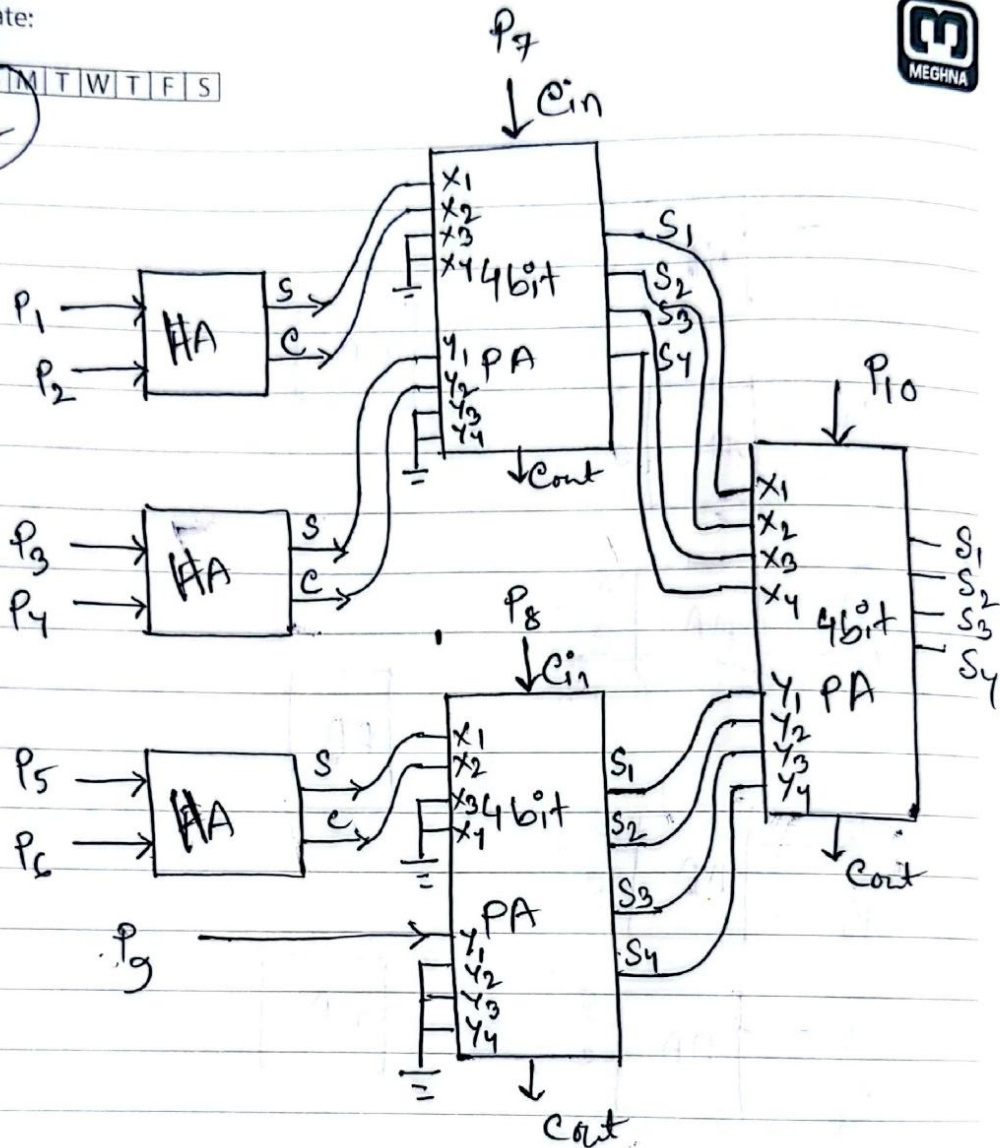 ate:
M T W T F S
MEGHNA
P7
Cin
P1
P2
HA
S
C
X1
X2
X3
X4
4bit
Y1
PA
Y2
Y3
Y4
Cout
S1
S2
S3
S4
P3
P4
HA
S
C
P10
X1
X2
X3
X4
4bit
Y1
PA
Y2
Y3
Y4
S1
S2
S3
S4
Cout
P8
Cin
P5
P6
HA
S
C
X1
X2
X3
4bit
X4
PA
P9
Y1
Y2
Y3
Y4
S1
S2
S3
S4
Cout